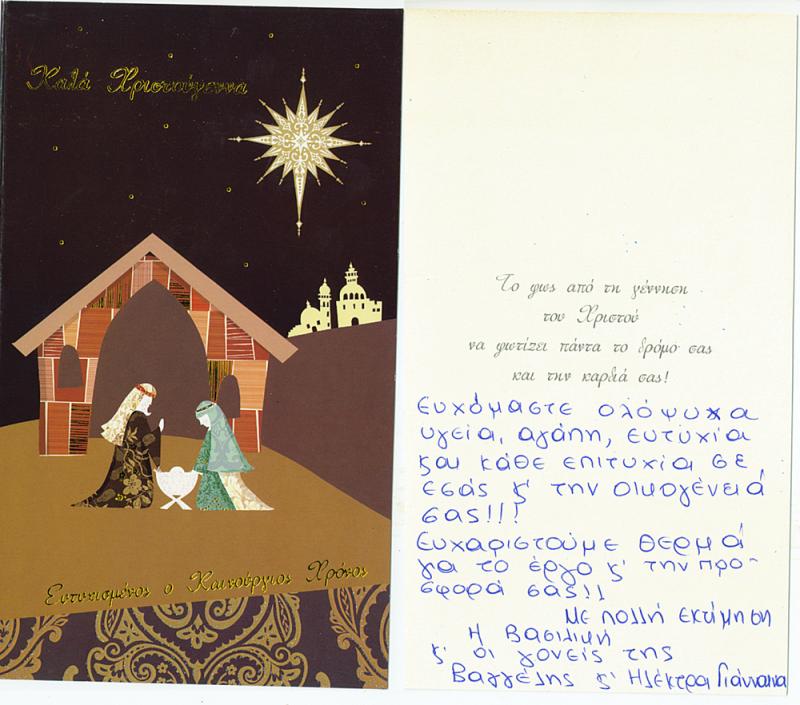 Καλά Χριστούγεννα
Ευτυχισμένος ο Καινούργιος Χρόνος
Το φως από τη γέννηση
του Χριστού
να φωτίζει πάντα το δρόμο σας
και την καρδιά σας!
Ευχόμαστε ολόψυχα
υγεία, αγάπη, ευτυχία
και κάθε επιτυχία σε
εσάς κ' την οικογένειά
σας!!!
Ευχαριστούμε θερμά
για το έργο κ' την προ-
σφορά σας!!
Με πολλή εκτίμηση
Η Βασιλική
κ' οι γονείς της
Βαγγέλης κ' Ηλέκτρα Γιάνναινα